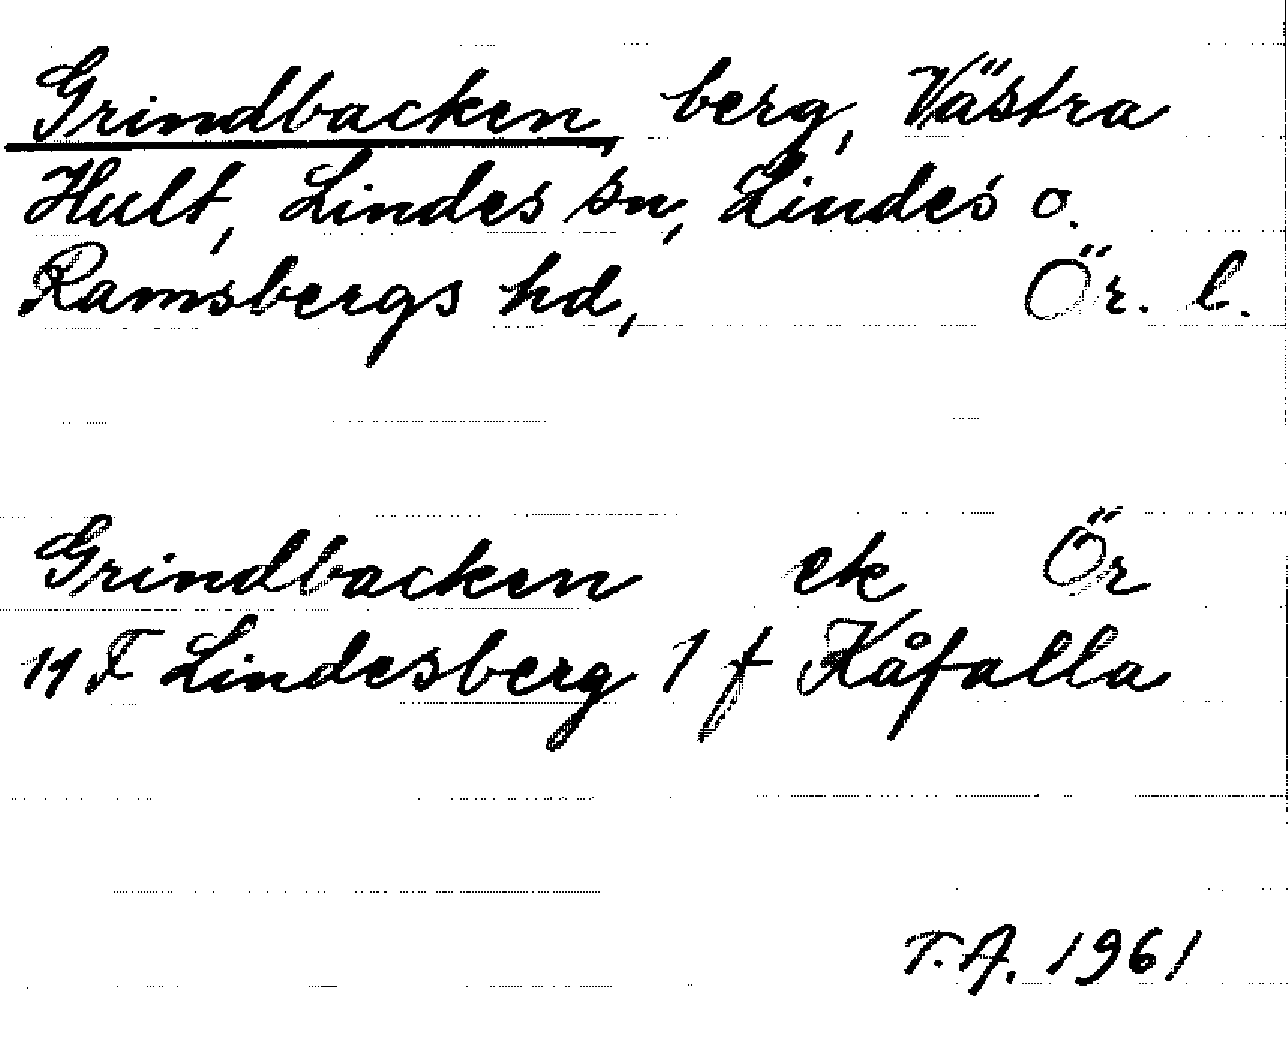 Grindbacken, berg, Västra
Hult, Lindes sn, Lindes o.
Ramsbergs hd, Ör. l.
Grindbacken ek Ör
11 F Lindesberg 1 f Kåfalla
T.A. 1961